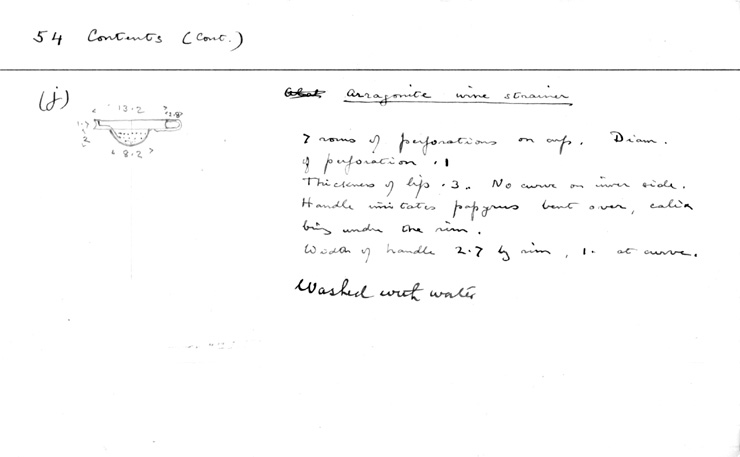 54 Contents (Cont.)
(j)
13.2
2.8
1.7
2
8.2
Arragonite wine strainer
7 rows of perforations on cup. Diam.
of perforation .1
Thickness of lip .3. No curve on inner side.
Handle imitates papyrus bent over, calix
being under the rim.
Width of handle 2.7 by rim, 1. at curve.
Washed with water